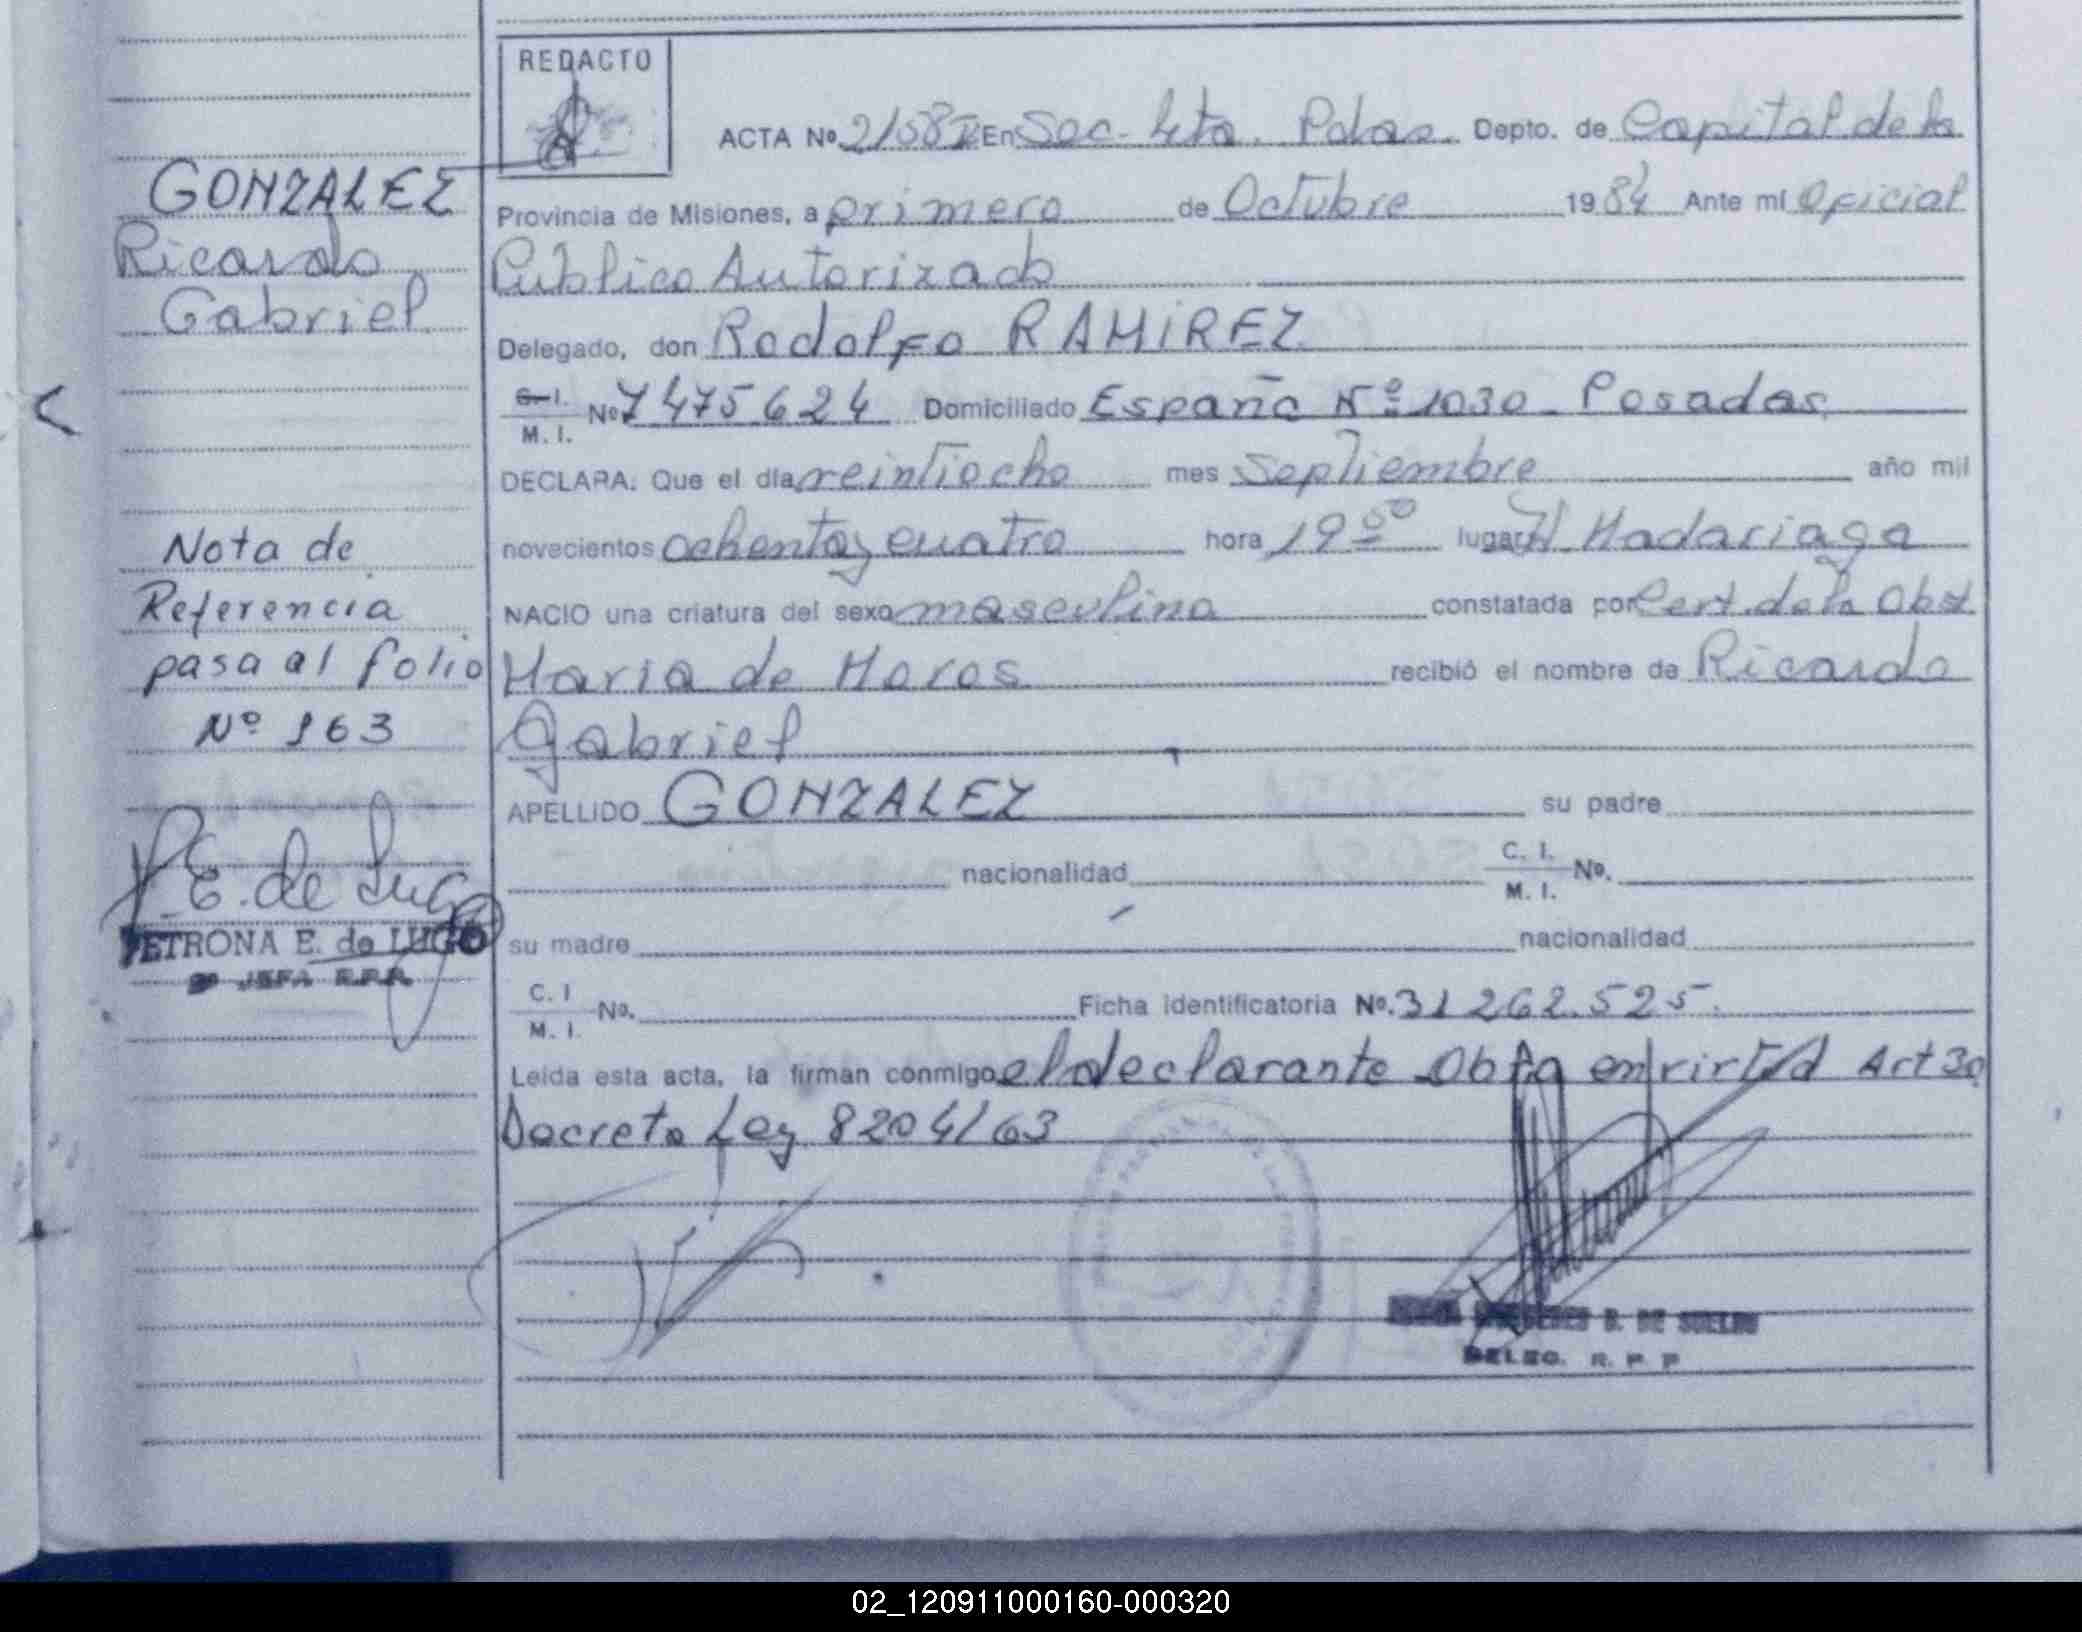 REDACTO
ACTA Nº 2158 I En Sec. 4ta. Pdas. Depto. de Capital de la
GONZALEZ
Ricardo
Gabriel
Provincia de Misiones, a primero de Octubre 1984 Ante mí Oficial
Publico Autorizado
Delegado, don Rodolfo RAMIREZ
C. I. M. I. Nº 7475624 Domiciliado España Nº 1030 Posadas
DECLARA: Que el día veintiocho mes Septiembre año mil
novecientos ochenta y cuatro hora 19 50 lugar H Madariaga
NACIO una criatura del sexo masculino constatada por Cert. de la Obst
Maria de Moros recibió el nombre de Ricardo
Gabriel
APELLIDO GONZALEZ su padre
nacionalidad C. I. M. I. Nº.
su madre nacionalidad
C. I M. I. Nº. Ficha identificatoria Nº. 31262.525.
Leída esta acta, la firman conmigo el declarante Obra en virtud Art 30
Decreto Ley 8204/63
Nota de
Referencia
pasa al folio
Nº 163
P E. de Lugo
PETRONA E. de LUGO
2º JEFA R.P.P.
D. DE SUELDO
DELEG. R. P. P
02_120911000160-000320